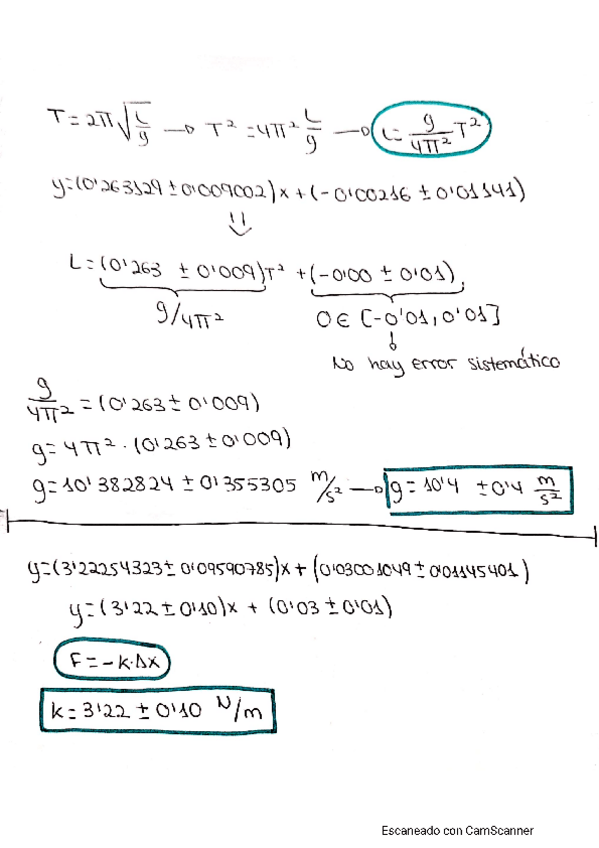 T = 2π√(L/g) → T² = 4π² L/g → L = g/4π² T²
y = (0'263129 ± 0'009002)x + (-0'00216 ± 0'01141)
⇓
L = (0'263 ± 0'009)T² + (-0'00 ± 0'01)
g/4π² 0 ∈ [-0'01, 0'01]
↓
No hay error sistemático
g/4π² = (0'263 ± 0'009)
g = 4π² · (0'263 ± 0'009)
g = 10'382824 ± 0'355305 m/s² → g = 10'4 ± 0'4 m/s²
y = (3'22254323 ± 0'09590785)x + (0'03001049 ± 0'01145401)
y = (3'22 ± 0'10)x + (0'03 ± 0'01)
F = -k·Δx
k = 3'22 ± 0'10 N/m
Escaneado con CamScanner